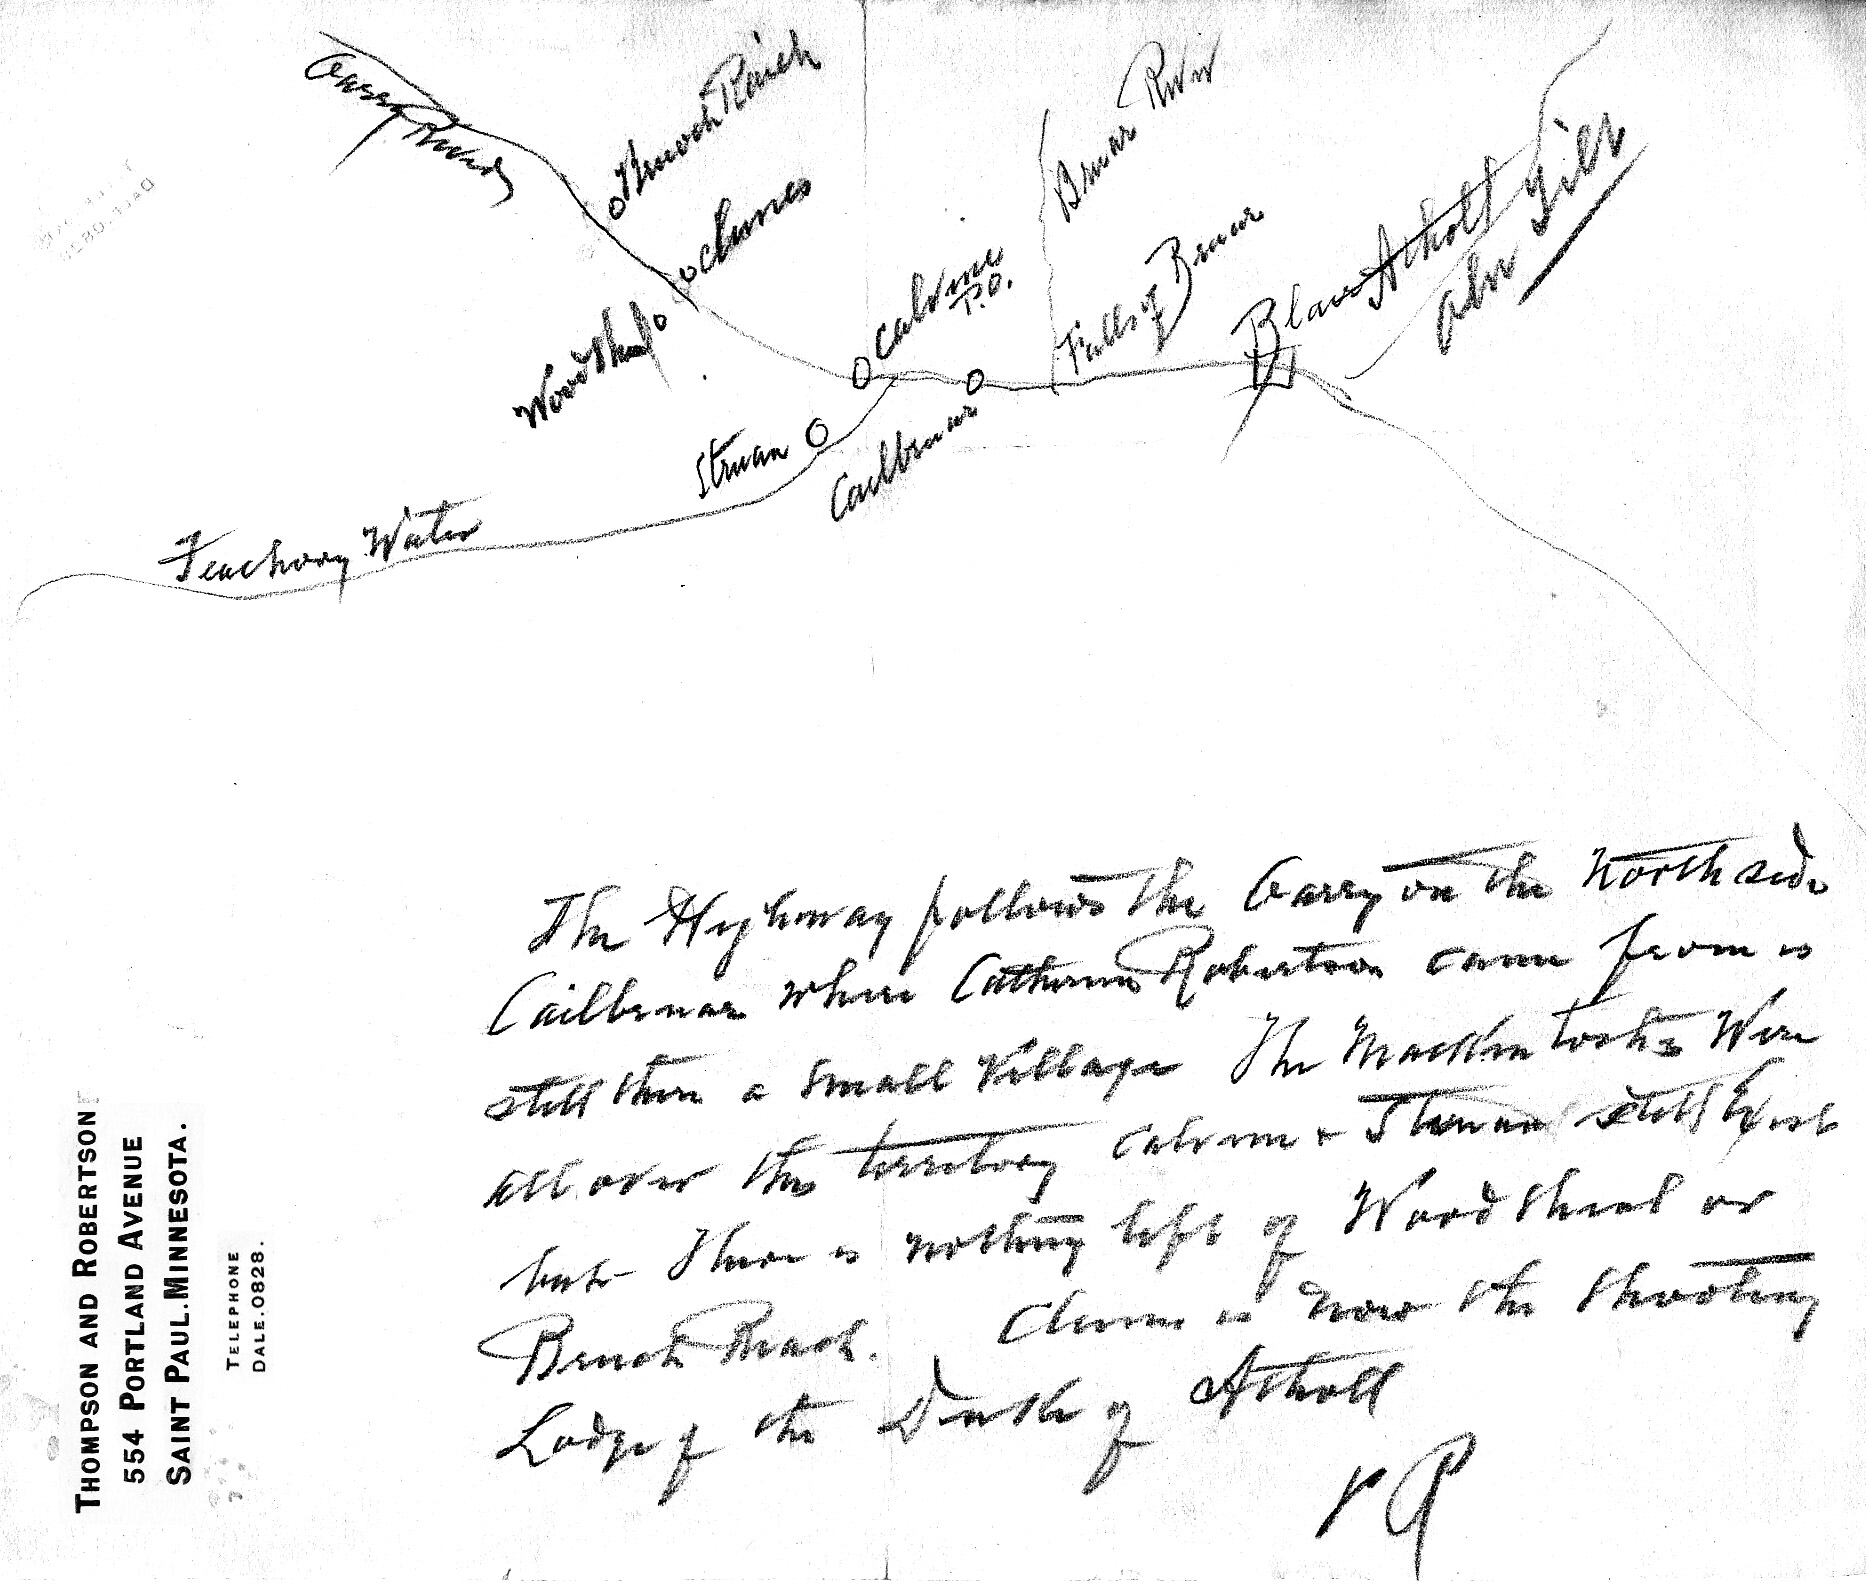 Garry River
Benoch Raich
oclunes
Woodsheal
Calvine
P.O.
Bruar River
Falls of Bruar
Blair Atholl
Gilt
Struan
Cailbruar
Feachory Water
The Highway follows the Garry on the North side
Cailbruar where Catherine Robertson came from is
still there a small Village The MacKintoshs Were
all over this territory Calvine + Struan still Exist
but there is nothing left of Woodsheal or
Benoch Reach. Clunes is now the shooting
Lodge of the Duke of Atholl
THOMPSON AND ROBERTSON
554 PORTLAND AVENUE
SAINT PAUL. MINNESOTA.
TELEPHONE
DALE. 0828.